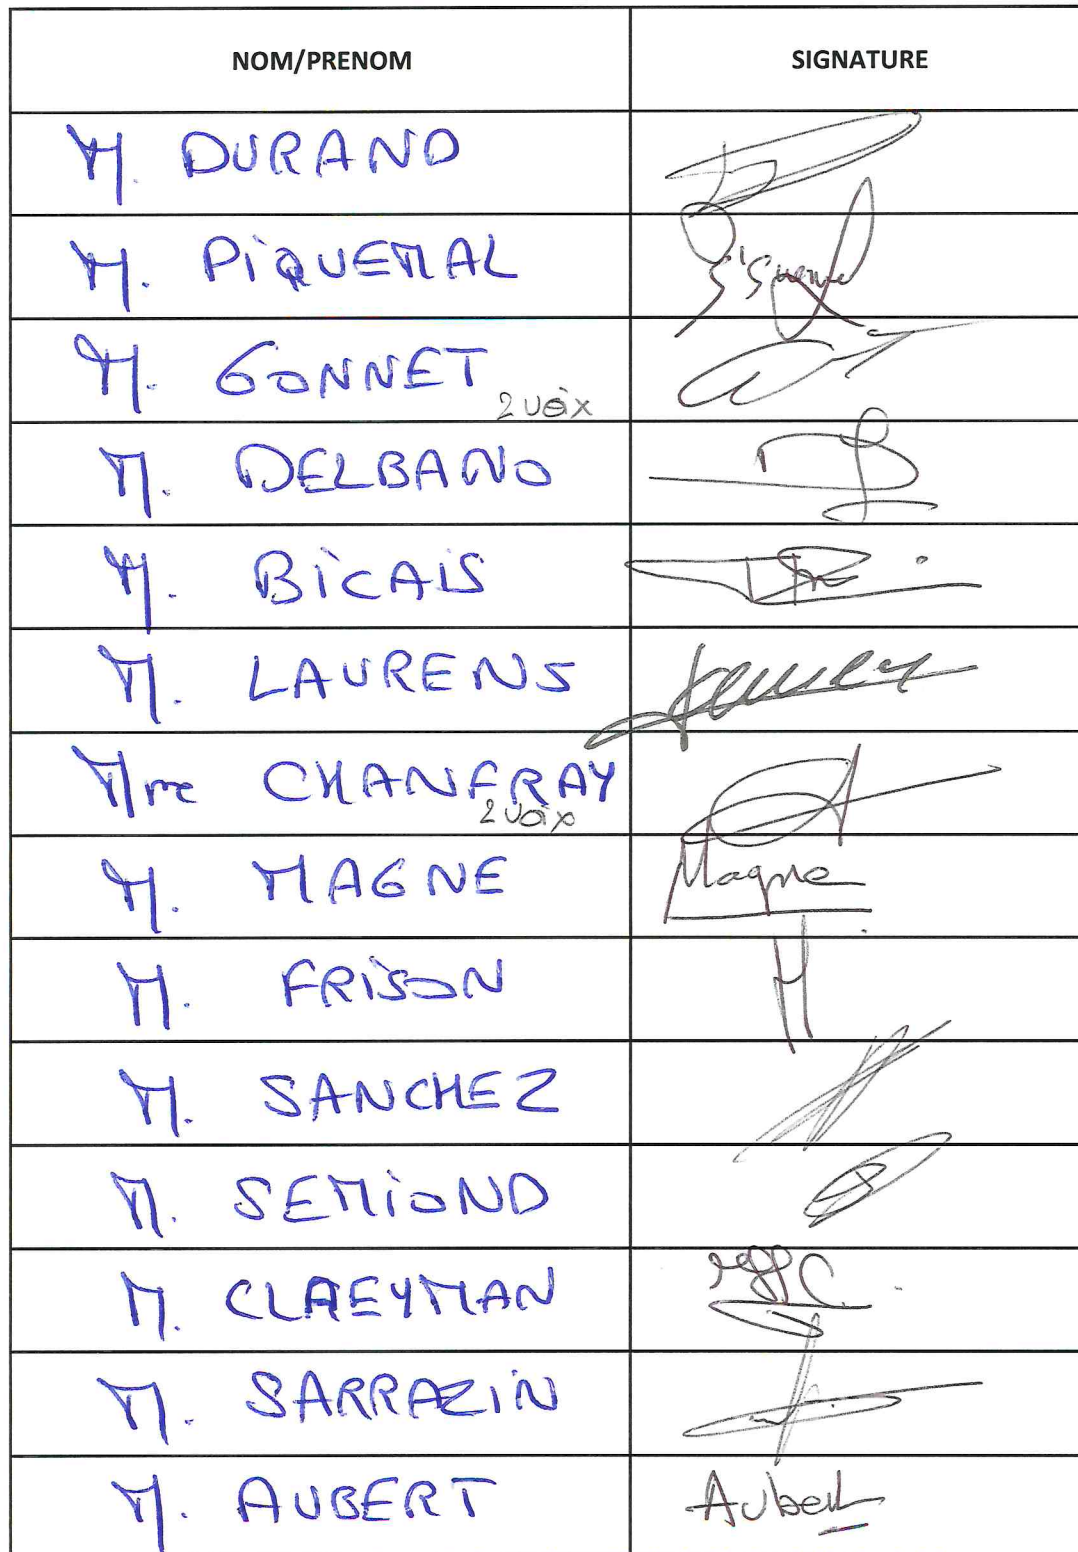 NOM/PRENOM SIGNATURE
M. DURAND
M. PIQUEMAL
M. GONNET
2 voix
M. DELBANO
M. BICAIS
M. LAURENS
Mme CHANFRAY
2 voix
M. MAGNE Magne
M. FRISON
M. SANCHEZ
M. SEMIOND
M. CLAEYMAN
M. SARRAZIN
M. AUBERT Aubert